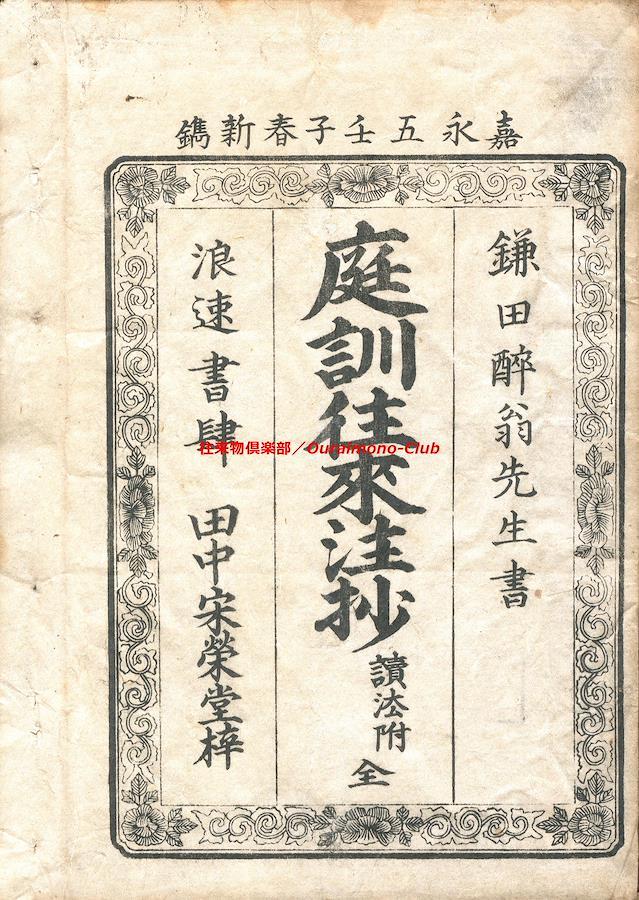 嘉永五壬子春新鐫
鎌田醉翁先生書
庭訓往來注抄
讀法附
全
浪速書肆 田中宋榮堂梓
往来物倶楽部／Ouraimono-Club